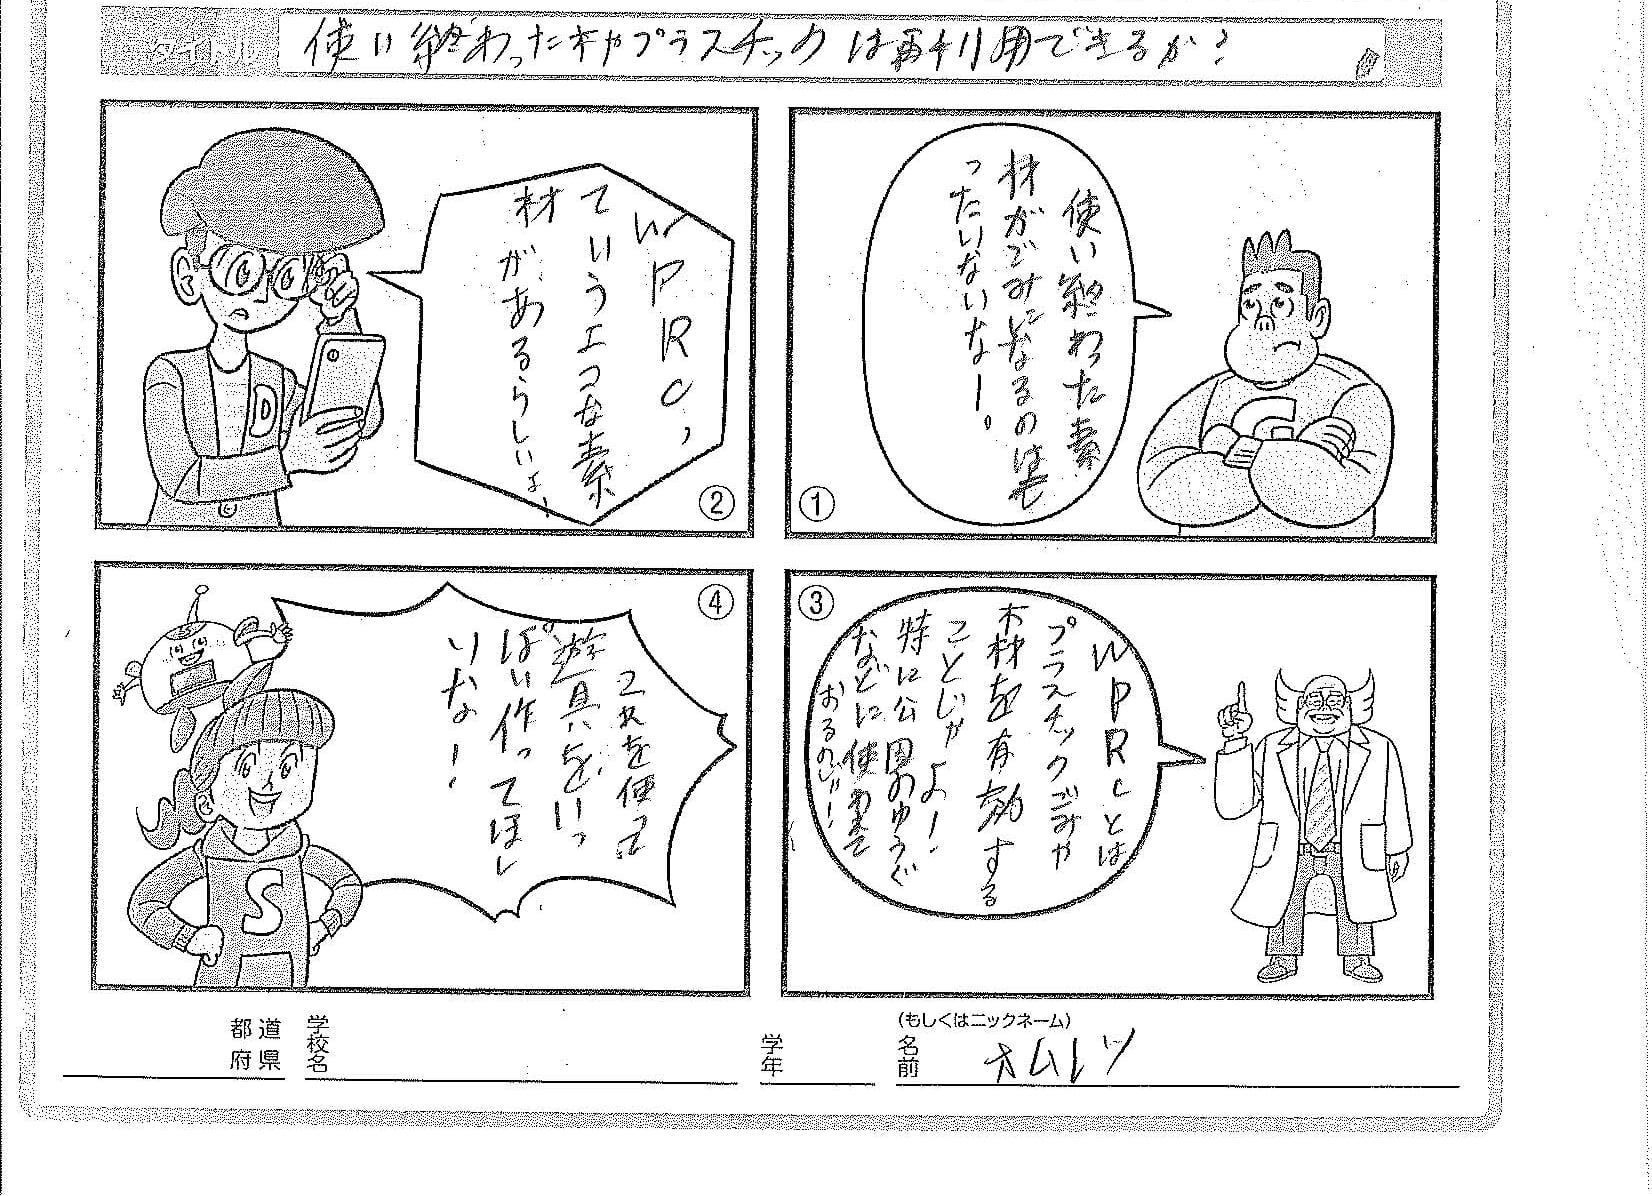 タイトル
使い終わった木やプラスチックは再利用できるか?
使い終わった素
材がごみになるのはも
ったいないなー。
①
WPRC,
ていうような素
材があるらしいよー
D
②
WPRCとは
プラスチックごみや
木材を有効する
ことじゃよ!
特に公園のゆうぐ
などに使われて
おるのじゃ!
③
これを使って
遊具をいっ
ぱい作ってほし
いな!
S
④
都道
府県
学校名
学年
(もしくはニックネーム)
名前
オムレツ